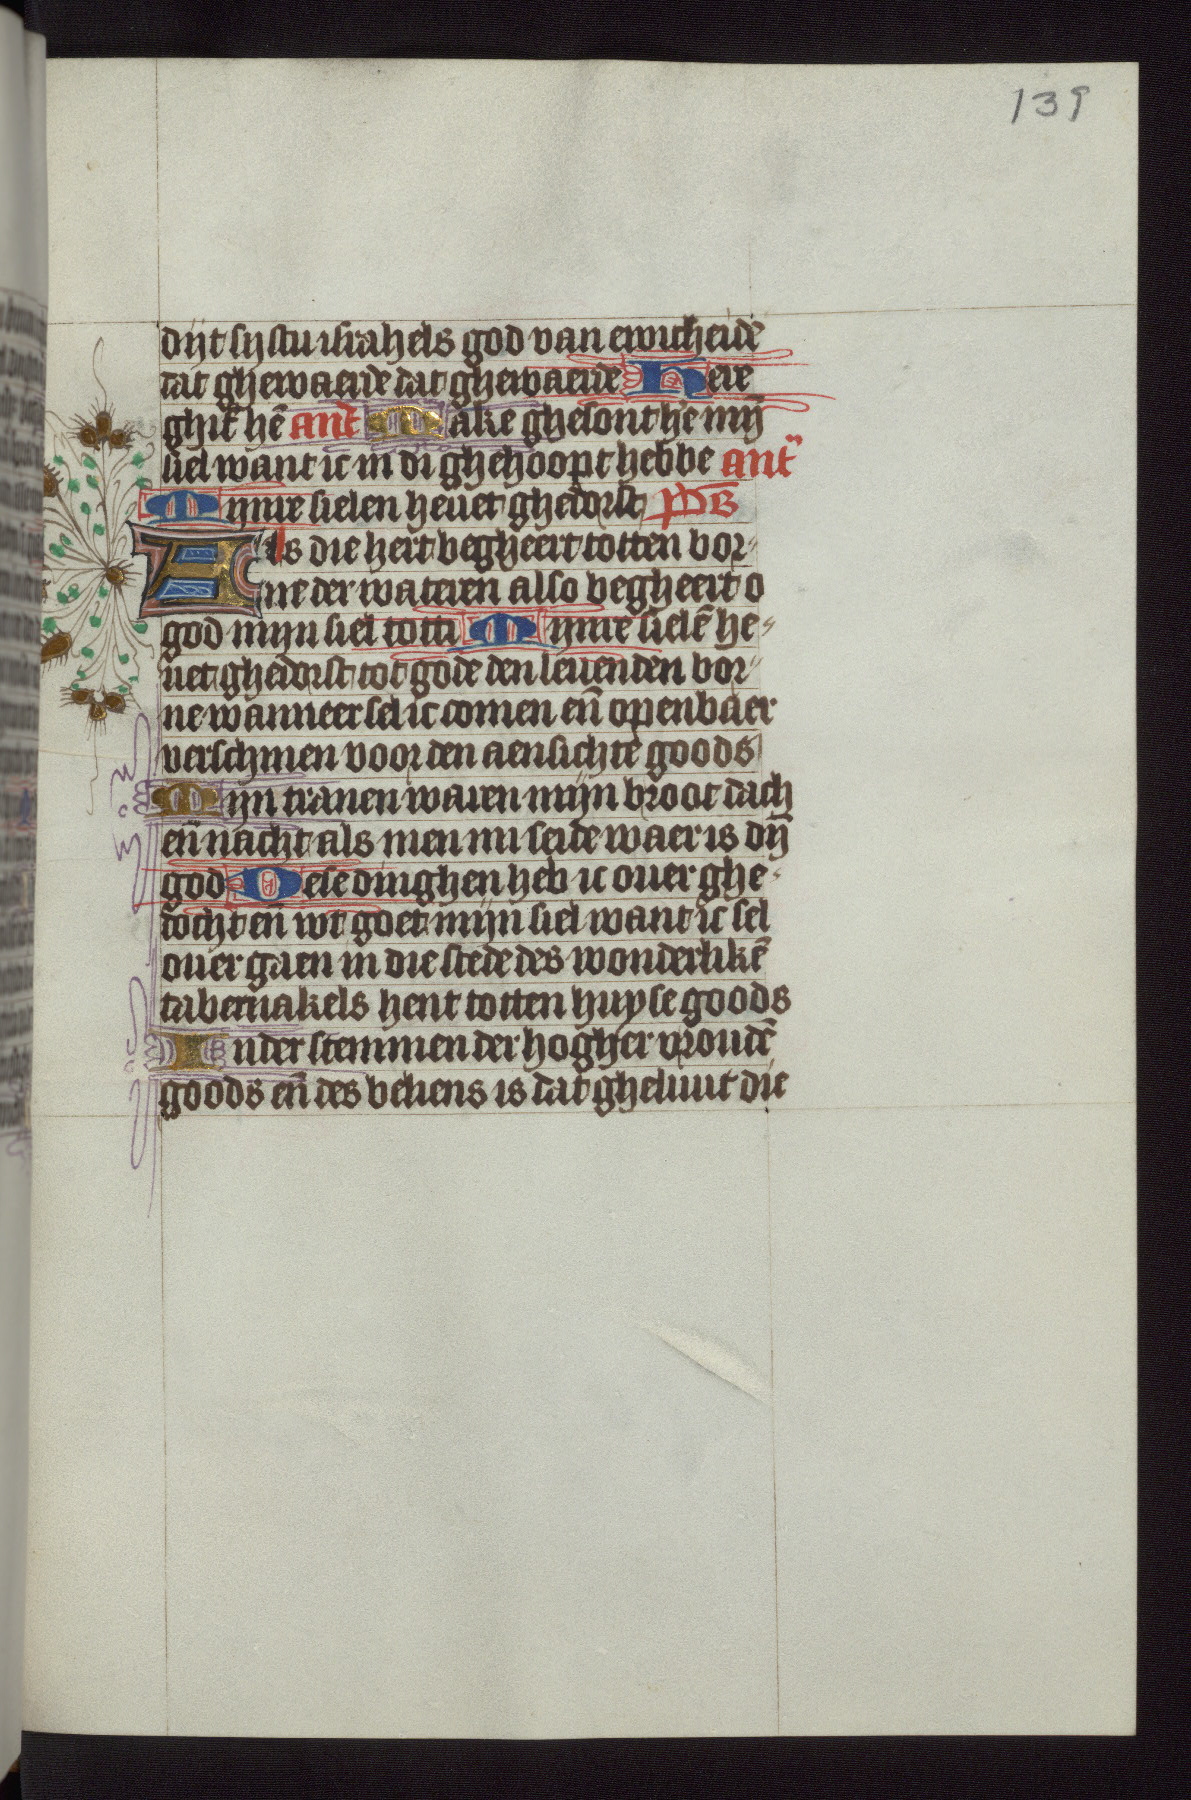 139
dijt sijstu israhels god van ewicheide
dat ghewaerde dat ghewaerde Here
ghif hē ant Make ghesont here mij̄
siel want ic in di ghehoopt hebbe ant
Mijnre sielen heuet ghedorst ps
Als die hert begheert totten bor-
ne der wateren also begheert o
god mijn siel totti Mijnre sielē he-
uet ghedorst tot gode den leuenden bor-
ne wanneer sel ic comen en̄ openbaer
verschinen voor den aensichte goods
Mijn tranen waren mijn broot dach
en̄ nacht als men mi seide waer is dij̄
god Dese dinghen heb ic ouer ghe-
docht en̄ wt goet mijn siel want ic sel
ouer gaen in die stede des wonderlikē
tabernakels hent totten huyse goods
In der stemmen der hogher vroudē
goods en̄ des beliens is dat gheluut die